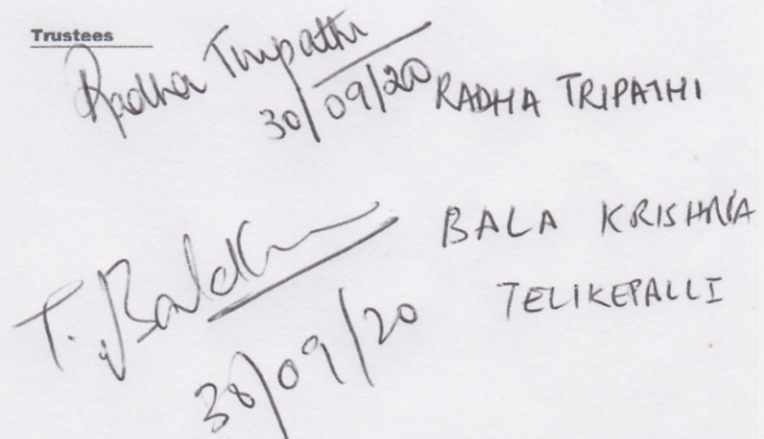 Trustees
Radha Tripathi
30/09/20 RADHA TRIPATHI
BALA KRISHNA
T. Balakr
30/09/20 TELIKEPALLI